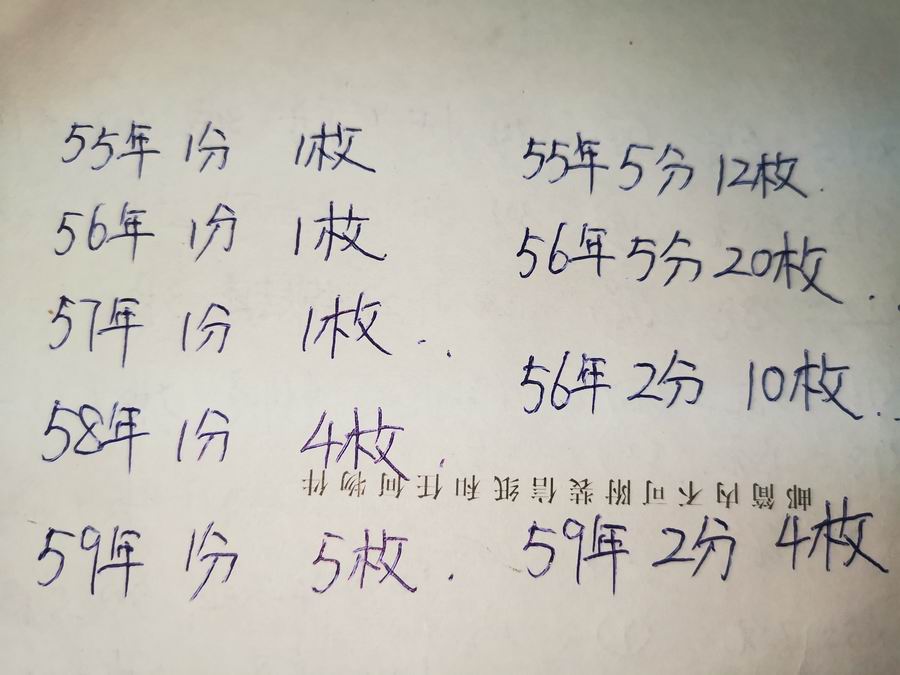 55年 1分 1枚
56年 1分 1枚
57年 1分 1枚..
58年 1分 4枚.
59年 1分 5枚.
55年 5分 12枚.
56年 5分 20枚..
56年 2分 10枚..
邮筒内不可附装信纸和任何物件
59年 2分 4枚